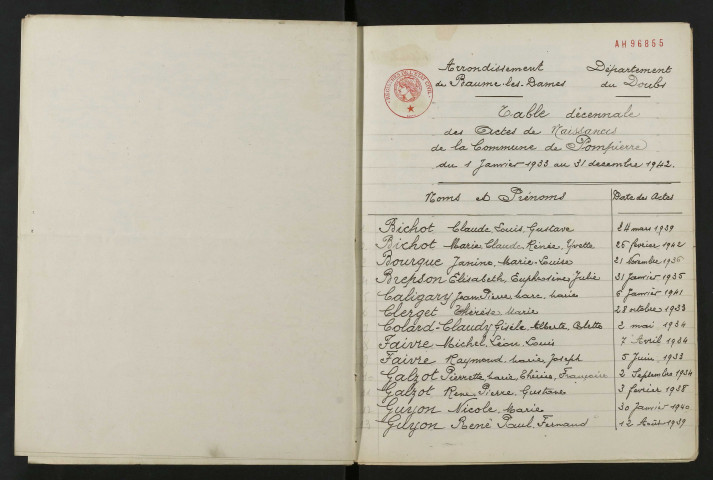 AH 96855
Arrondissement Département
de Baume-les-Dames du Doubs
Table décennale
des Actes de Naissances
de la Commune de Pompierre
du 1 Janvier 1933 au 31 décembre 1942.
Noms et Prénoms Date des Actes
Bichot Claude Louis Gustave 24 mars 1939
Bichot Marie Claude Renée Yvette 25 février 1942
Bourque Janine Marie-Louise 21 Novembre 1936
Brepson Elisabeth Euphrosine Julie 31 Janvier 1935
Caligary Jean Pierre Marc Marie 6 Janvier 1941
Clerget Thérèse Marie 28 octobre 1933
Colard-Claudy Gisèle Alberte Colette 2 mai 1934
Faivre Michel Léon Louis 7 Avril 1934
Faivre Raymond Marie Joseph 5 Juin 1933
Galzot Pierrette Marie Françoise 2 Septembre 1934
Galzot René Pierre Gustave 3 février 1938
Guyon Nicole Marie 30 Janvier 1940
Guyon René Paul Fernand 12 Août 1939